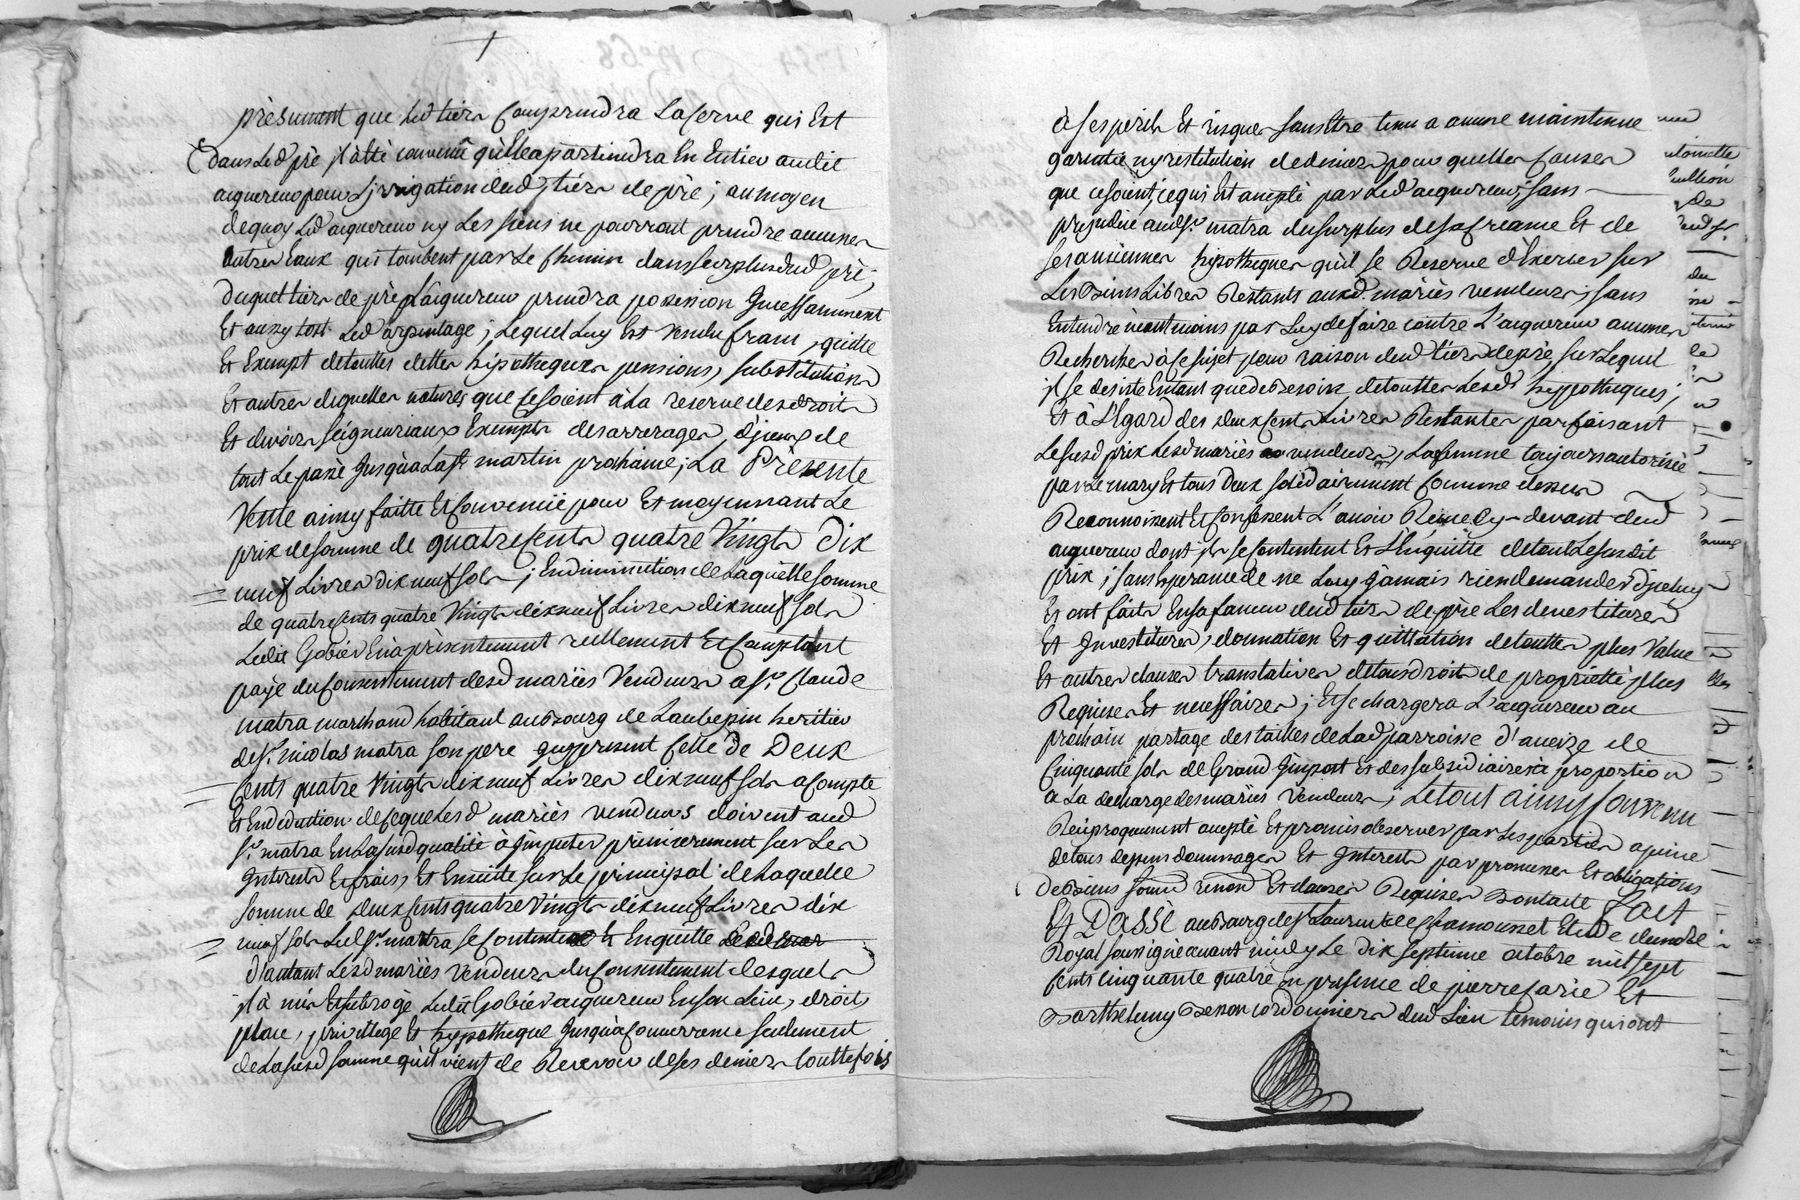 présument que led tiers comprendra la serve qui Est
dans led pré il a été convenu qu'elle apartiendra En Entier audit
aiquereur pour l'jrrigation dud tiers de pré ; au moyen
de quoy led aiquereur ny Les siens ne pourront prendre aucunes
autres Eaux qui tombent par le chemin dans surplus dud pré ;
duquel tiers de pré L'aiquereur prendra possession Jncessamment
Et aussy tost led arpentage ; Lequel luy Est vendu franc, quitte
Et Exempt de touttes dettes hipotheques pensions, substitutions
Et autres de quelles natures que ce soient à la reserve des droits
Et devoirs seigneuriaux Exempts des arrerages d'jceux de
tout Le passé Jusqu'a la st martin prochaine ; La Présente
Vente ainsy faitte Et convenüe pour Et moyennant le
prix de somme de quatre cents quatre Vingts Dix
neuf Livres dix neuf sols ; En diminution de laquelle somme
de quatre cents quatre Vingts dix neuf Livres dix neuf sols
Ledit Gobier En a présentement reellement Et comptant
payé du consentement desd mariés Vendeurs a sr. Claude
matra marchand habitant au bourg de Laubepin heritier
de sr. nicolas matra son pere jcy present celle de Deux
cents quatre Vingts dix neuf Livres dix neuf sols a compte
Et En deduction de ce que Lesd mariés vendeurs doivent aud
sr. matra En La susd qualité à jmputer premierement sur les
Interests Et frais, Et Ensuitte sur le principal de laquelle
somme de deux cents quatre Vingts dix neuf Livres dix
neuf sols led sr. matra se contente Et En quitte
d'autant Lesd mariés vendeurs du consentement desquels
jl a mis Et subrogé Ledit Gobier aiquereur En son Lieu, droit,
place, privillege Et hypotheque Jusqu'a concurrence seulement
de la susd somme qu'il vient de Recevoir de ses deniers touttefois
à ses perils Et risques sans Etre tenu a aucune maintenue
garantie ny restitution de deniers pour quelles causes
que ce soient, ce qui Est accepté par led aiquereur, sans
prejudice aud sr. matra du surplus de sa creance Et de
ses anciennes hipotheques qu'il se Reserve d'Exercer sur
Les Biens Libres Restants auxd. mariés vendeurs, sans
Entendre neantmoins par luy de faire contre L'aiquereur aucunes
Recherches à ce sujet pour raison dud tiers de pré sur Lequel
jl se desiste Entant que de Besoin de touttes Lesd hypotheques ;
Et à L'Egard des deux cents Livres Restantes parfaisant
Le susd prix Lesd mariés vendeurs, la femme toujours autorisée
par le mary Et tous deux solidairement comme dessus
Reconnoissent Et confessent L'avoir Reçu cy-devant dud
aiquereur dont jls se contentent Et L'En quitte de tout Le susdit
prix ; sans Esperance de ne luy jamais rien demander d'jceluy
Et ont faits En sa faveur dud tiers de pré Les devestitures
Et Investitures, donnation Et quittation de touttes plus Value
Et autres clauses translatives de tous droits de proprietté plus
Requises Et necessaires ; Et se chargera L'aiquereur au
prochain partage des tailles de Lad parroisse d'aveize de
Cinquante sols de Grand Jmpost Et des subsidiaires à proportion
a La decharge des mariés Vendeurs ; Le tout ainsy Convenu
Reciproquement accepté Et promis observer par les parties a peine
de tous depens dommages Et Interests par promesses Et obligations
de Biens soumd renond Et clauses Requises Dont acte Fait
Et PASSÉ au bourg de st Laurent de Chamousset Etude du notre
Royal soussigné avant midy Le dix septieme octobre mil sept
cents cinquante quatre En presence de pierre
Barthelemy cordonniers dud Lieu temoins qui ont